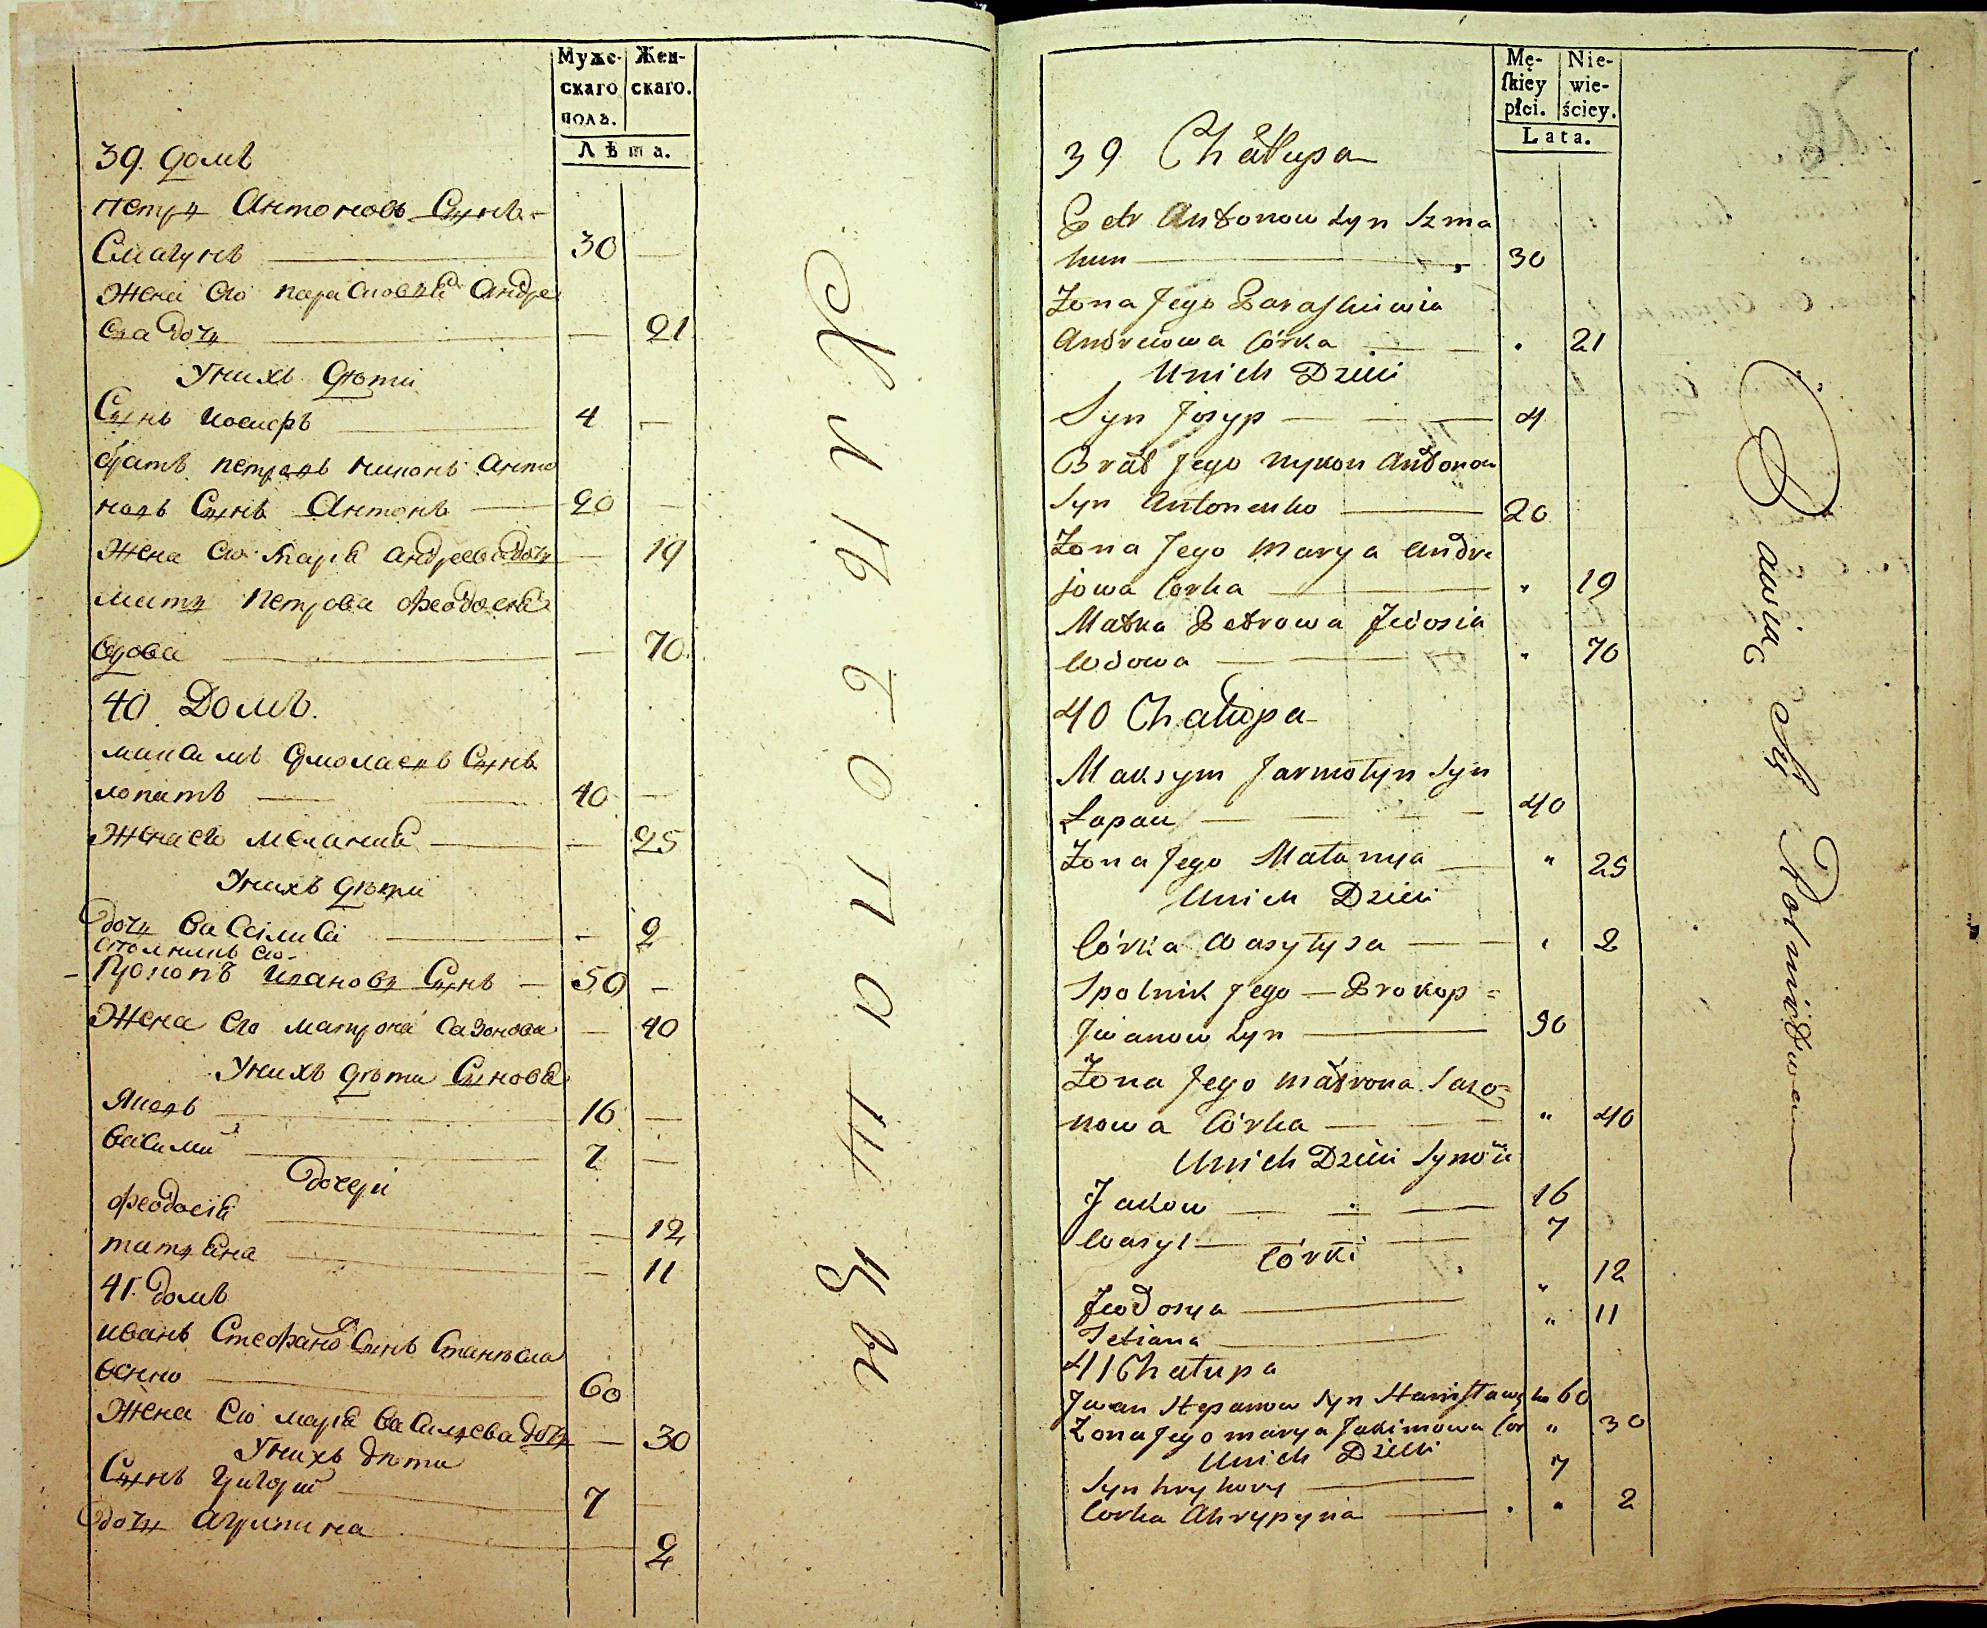 Мужс- Жен-
скаго скаго.
пола.
Лѣта.
39. домъ
петръ Антоновъ Сынъ
Смагунъ 30 —
Жена его парасковия Андре
ева дочь — 21
Унихъ дѣти
Сынъ иосифъ 4 —
братъ петровъ никонъ Анто
новъ Сынъ Антонъ 20 —
Жена его мария андреева дочь — 19
мать Петрова феодосия
вдова — 70
40 Домъ.
максимъ Ермолаевъ Сынъ
лопатъ 40 —
Жена его мелания — 25
Унихъ дѣти
дочь василиса — 2
столникъ его
Прокопъ Ивановъ Сынъ 50 —
Жена его матрона сазонова — 40
Унихъ дѣти Сынова
Яковъ 16 —
василий 7 —
дочери
феодосія — 12
татьяна — 11
41. домъ
иванъ Стефановъ Сынъ Станисла
венко 60
Жена его мария васильева дочь — 30
Унихъ дѣти
Сынъ григорий 7 —
дочь агрипина 2
Mę- Nie-
skiey wie-
płci. ściey.
Lata.
39 Chałupa
Petr Antonow Syn Szma
hun 30
Żona Jego Paraskiewia
Andreiowa Córka " 21
Unich Dzieci
Syn Josyp 4
Brat Jego Nykon Antonow
Syn Antonenko 20
Żona Jego Marya Andre
jowa Corka " 19
Matka Petrowa Fedosia
Wdowa " 70
40 Chałupa
Maksym Jarmołyn Syn
Łopau 40
Żona Jego Małanya " 25
Unich Dzieci
Córka Wasyłysa " 2
Spolnik Jego — Prokop =
Jwanow Syn 50
Żona Jego Matrona Sazo=
nowa Córka " 40
Unich Dzieci Synów
Jakow 16
Wasyl 7
Córki
Feodosya " 12
Tetiana " 11
41 Chałupa
Jwan Stepanow Syn Stanisławenko 60
Żona Jego marya Jakimowa Cor " 30
Unich Dzieci
Syn hryhory 7
Corka Ahrypyna " 2